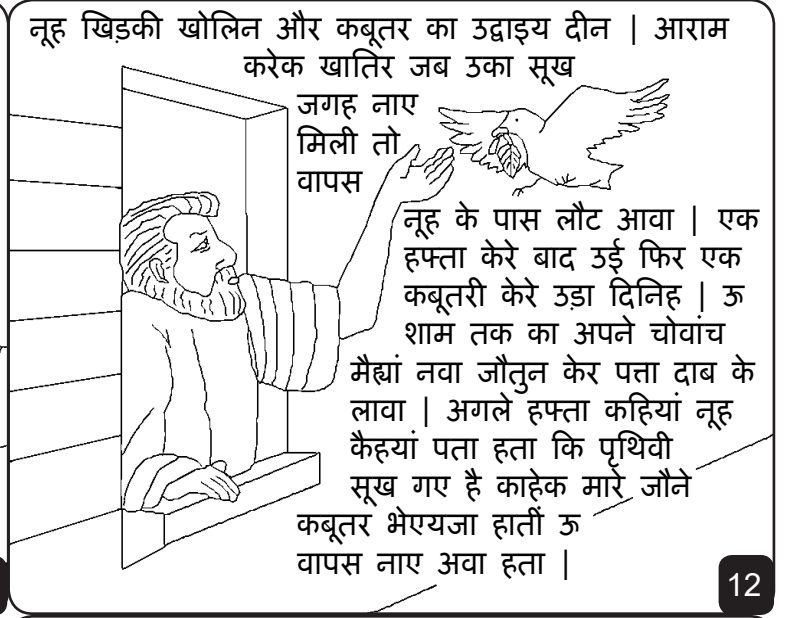 नूह खिड़की खोलिन और कबूतर का उद्वाइय दीन | आराम
करेक खातिर जब उका सूख
जगह नाए
मिली तो
वापस
नूह के पास लौट आवा | एक
हफ्ता केरे बाद उई फिर एक
कबूतरी केरे उड़ा दिनिह | ऊ
शाम तक का अपने चोवांच
मैह्यां नवा जौतुन केर पत्ता दाब के
लावा | अगले हफ्ता कहियां नूह
कैहयां पता हता कि पृथिवी
सूख गए है काहेक मारे जौने
कबूतर भेएयजा हातीं ऊ
वापस नाए अवा हता |
12